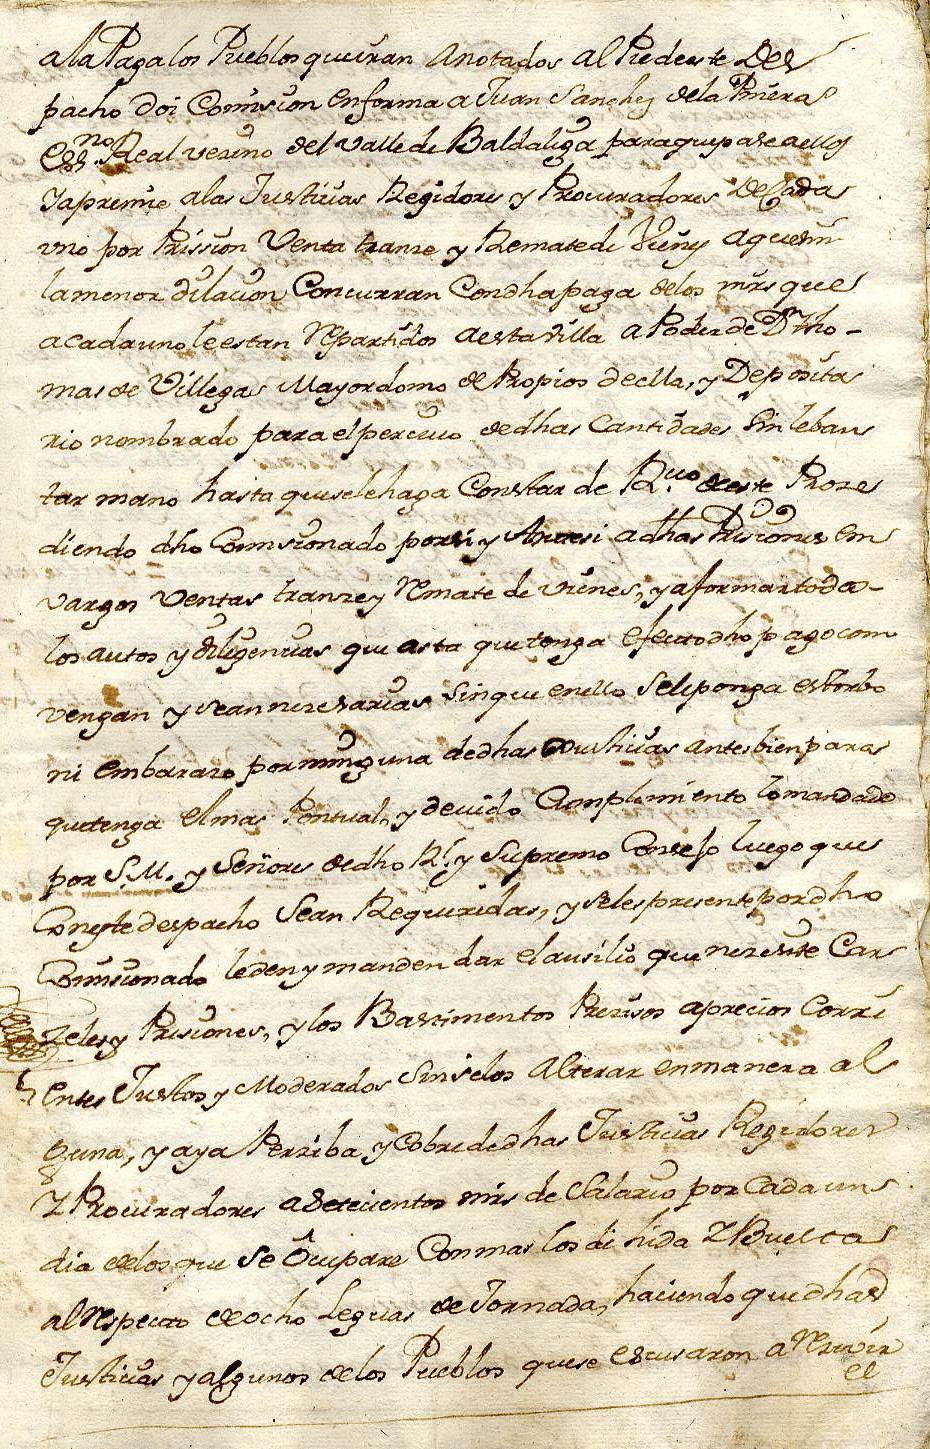 ala Paga los Pueblos que iran anotados al Pie deste Des
pacho doi Comision en forma a Juan Sanchez dela
Essno. Real vezino del valle de Baldaliga para que pase a ellos
y apremie alas Justicias Regidores y Procuradores de Cada
uno por Prission Venta tranze y Remate de Vienes a que sin
la menor dilacion Concurran Con dha paga delos mrs que
a cada uno le estan Repartidos a esta villa a Poder de Dn. Tho-
mas de Villegas Mayordomo de Propios de ella, y Deposita
rio nombrado para el percivo de dhas Cantidades sin leban
tar mano hasta que se le haga Constar de Rcivo de este Proze
diendo dho Comisionado por si y Ante si a dhas Prisiones em
vargos Ventas tranze y Remate de vienes; y a formar toda-
los autos y diligencias que asta que tenga efecto dho pago com
vengan y sean nezesarias sin que en ello se le ponga estorbo
ni embarazo por ninguna de dhas Justicias antes bien para
que tenga el mas Pontual, y devido Cumplimiento lo mandado
por S.M. y Señores de dho Rl. y Supremo Consejo luego que
Con este despacho Sean Requeridas, y se les presente por dho
Comisionado le den y manden dar el ausilio que nezesite Car
zeles y Prisiones, y los Bastimentos Prezisos a precios Corri
entes Justos y Moderados Sin selos alterar en manera al
guna, y aya Perziba, y Cobre de dhas Justicias Regidores
y Procuradores a setecientos mrs de Salario por Cada un
dia delos que se Ocupare Con mas los de hida y Buelta
al respecto de ocho Leguas de Jornada, haciendo que dhas
Justicias y algunos delos Pueblos que se escusaron a
el